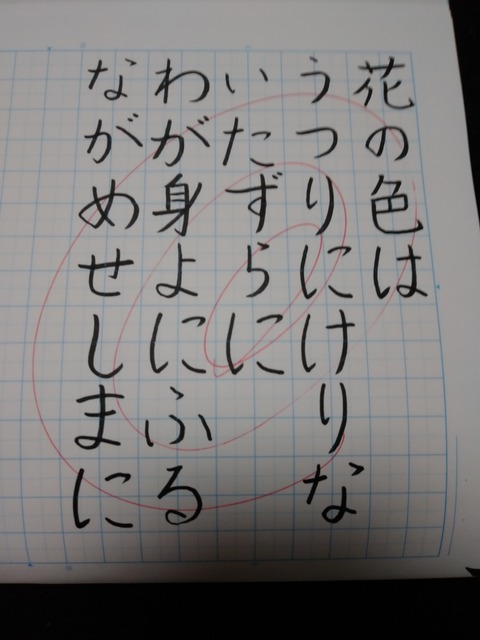 花の色は
うつりにけりな
いたずらに
わが身よにふる
ながめせしまに